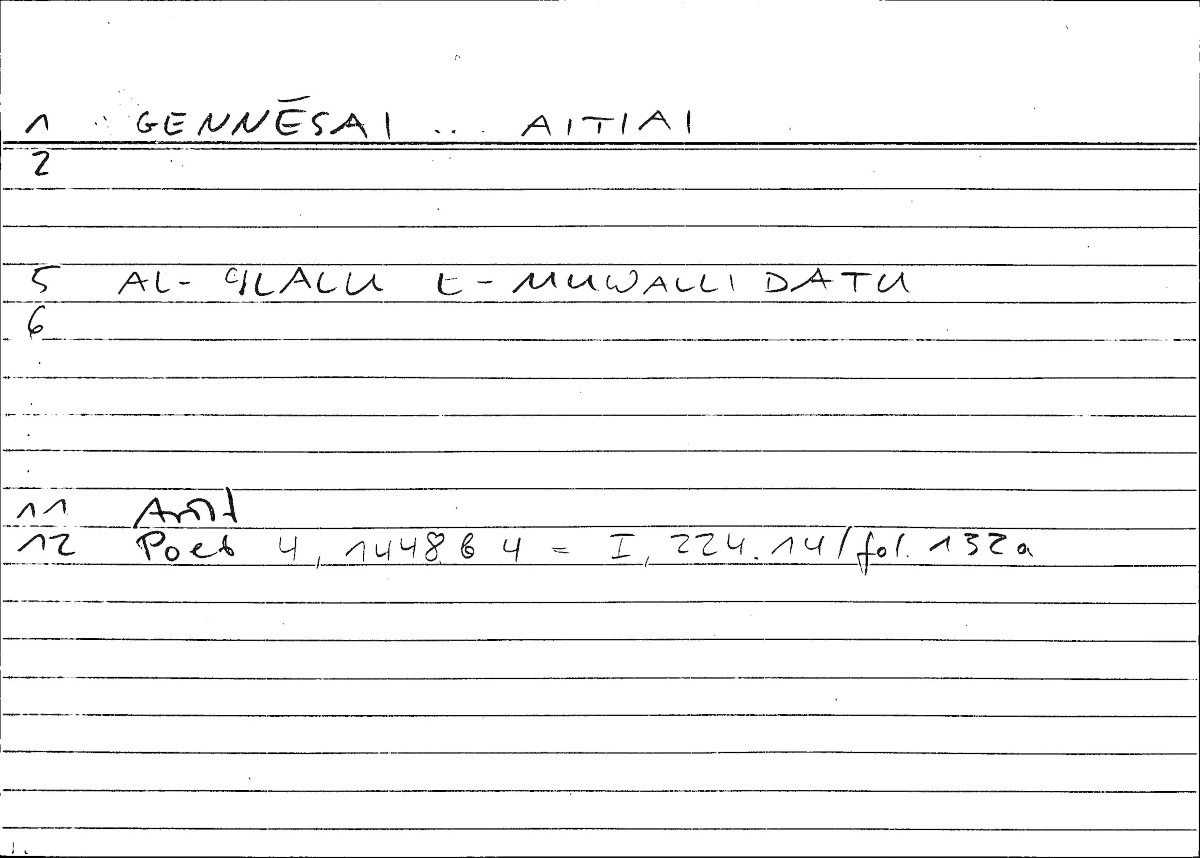 1 .. GENNĒSAI .. AITIAI
2
5 AL- ʿILALU L-MUWALLIDATU
6
.
.
.
.
11 Arist
12 Poet 4, 1448 b 4 = I, 224.14/fol. 132a